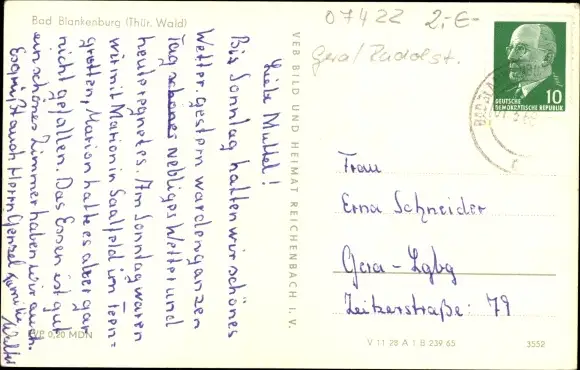 Bad Blankenburg (Thür. Wald)
07422 2,-E-
Gera/Rudolst.
Liebe Muttel!
Bis Sonntag hatten wir schönes
Wetter. gestern war den ganzen
Tag schönes nebliges Wetter und
heute regnet es. Am Sonntag waren
wir mit Marion in Saalfeld im Feen=
grotten, Marion hatte es aber gar
nicht gefallen. Das Essen ist gut
ein schönes Zimmer haben wir auch.
Es grüßt auch Herrn Genzel Familie
Walter
VEB BILD UND HEIMAT REICHENBACH I. V.
DEUTSCHE
DEMOKRATISCHE REPUBLIK
10
Frau
Erna Schneider
Gera-Lgbg
Zeikerstraße: 79
EVP 0,20 MDN
V 11 28 A 1 B 239 65
3552